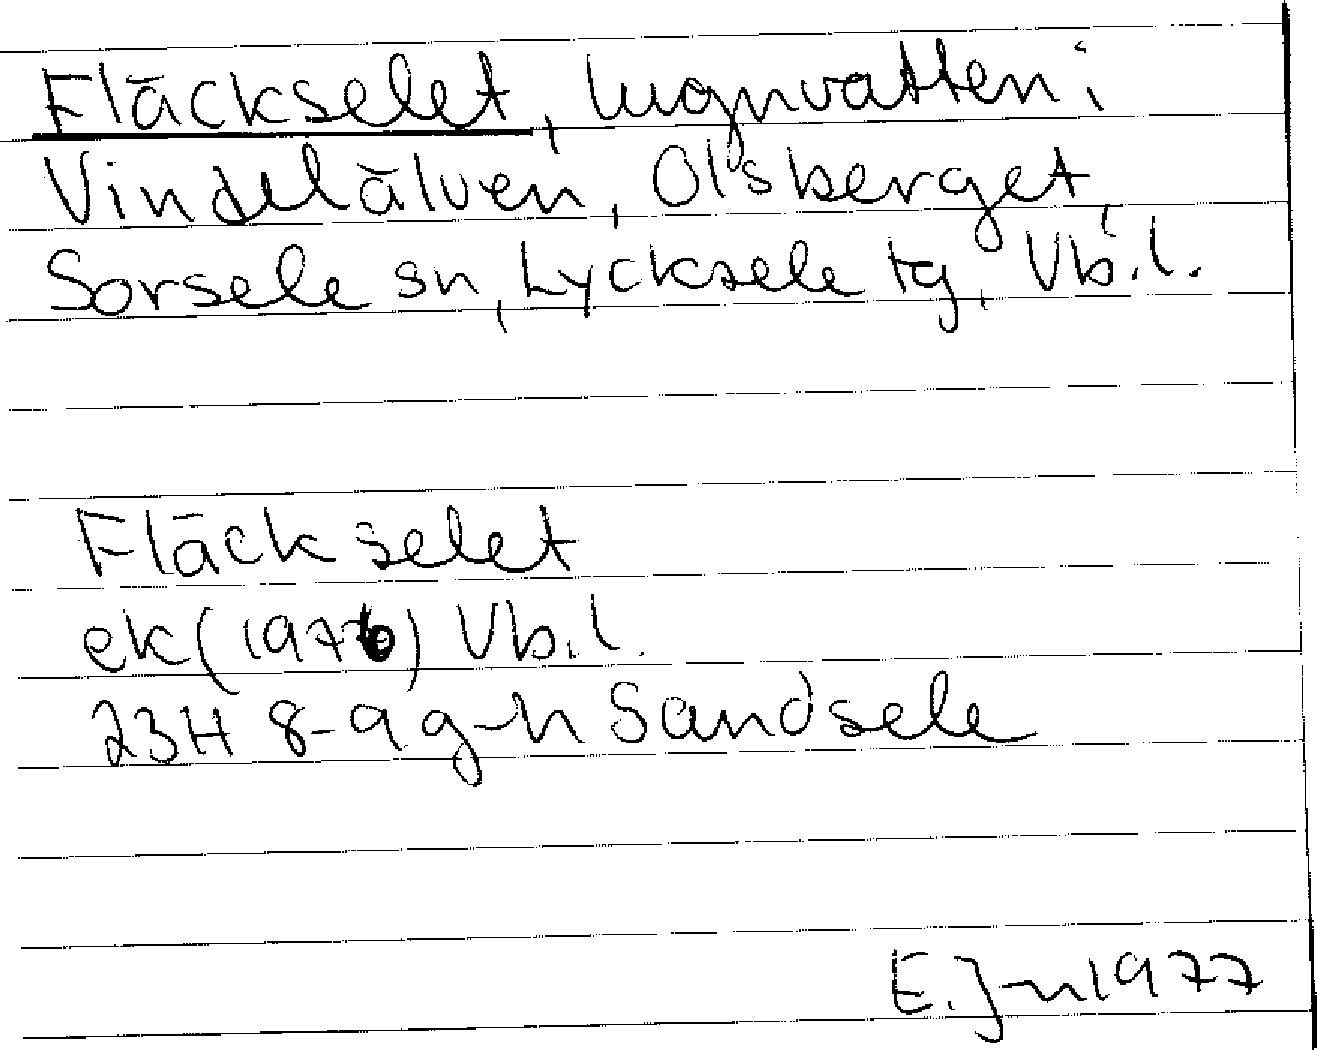 Fläckselet, lugnvatten i
Vindelälven, Olsberget,
Sorsele sn, Lycksele tg, Vb.l.
Fläckselet
ek (1976) Vb.l.
23H 8-9 g-h Sandsele
E. J-n 1977